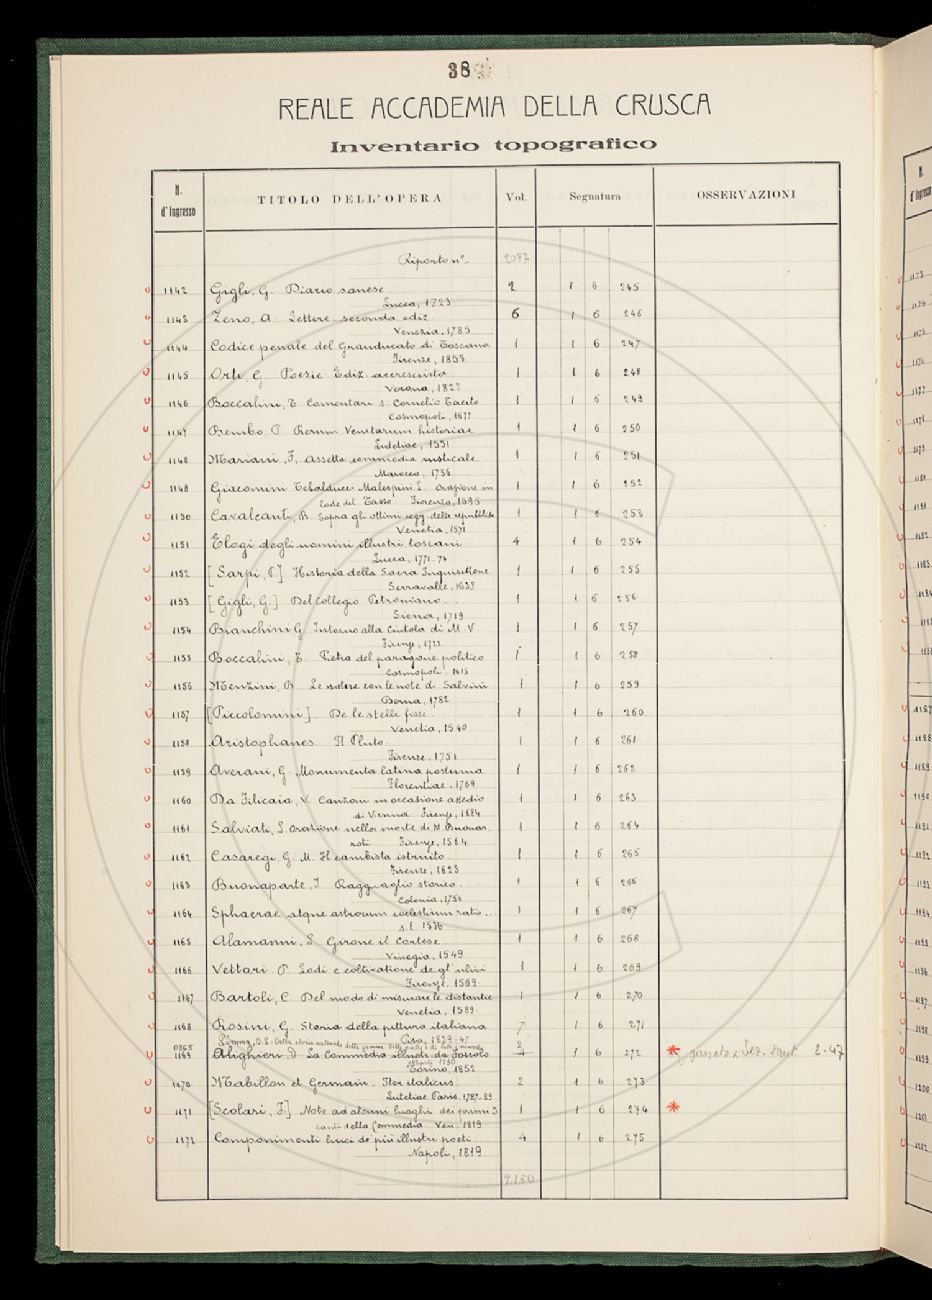 38
REALE ACCADEMIA DELLA CRUSCA
Inventario topografico
N. d'Ingresso TITOLO DELL'OPERA Vol. Segnatura OSSERVAZIONI
Riporto nº 2097
1142 Gigli, G. Diario sanese 2 1 6 245
Lucca, 1723
1143 Zeno, A. Lettere. seconda ediz. 6 1 6 246
Venezia, 1785
1144 Codice penale del Granducato di Toscana 1 1 6 247
Firenze, 1853
1145 Orti, G. Poesie. Ediz. accresciuta 1 1 6 248
Verona, 1822
1146 Boccalini, T. Comentari s. Cornelio Tacito 1 1 6 249
Cosmopoli, 1677
1147 Bembo, P. Rerum Venetarum historiae 1 1 6 250
Lutetiae, 1551
1148 Mariani, F. Assetta commedia rusticale 1 1 6 251
Marocco, 1756
1149 Giacomini Tebalducci Malespini L. Orazione in 1 1 6 252
lode del Tasso. Fiorenza, 1595
1150 Cavalcanti, B. Sopra gli ottimi regg. delle repubblic. 1 1 6 253
Venetia, 1571
1151 Elogi degli uomini illustri toscani 4 1 6 254
Lucca, 1771-74
1152 [Sarpi, P.] Historia della Sacra Inquisitione 1 1 6 255
Serravalle, 1638
1153 [Gigli, G.] Del Collegio Petroniano 1 1 6 256
Siena, 1719
1154 Bianchini G. Intorno alla Cintola di M. V. 1 1 6 257
Firenze, 1722
1155 Boccalini, T. Pietra del paragone politico 1 1 6 258
Cosmopoli, 1615
1156 Menzini, B. Le satire con le note di Salvini 1 1 6 259
Berna, 1782
1157 [Piccolomini]. De le stelle fisse. 1 1 6 260
Venetia, 1540
1158 Aristophanes. Il Pluto 1 1 6 261
Firenze, 1751
1159 Averani, G. Monumenta latina postuma 1 1 6 262
Florentiae, 1769
1160 Da Filicaia, V. Canzoni in occasione assedio 1 1 6 263
di Vienna. Firenze, 1684
1161 Salviati, L. Orazione nella morte di M. Buonar- 1 1 6 264
roti. Firenze, 1564
1162 Casaregi, G. M. Il cambista istruito. 1 1 6 265
Firenze, 1623
1163 Buonaparte, J. Ragguaglio storico. 1 1 6 266
Colonia, 1756
1164 Sphaerae atque astrorum coelestium ratio.. 1 1 6 267
s.l. 1536
1165 Alamanni, L. Girone il Cortese. 1 1 6 268
Vinegia, 1549
1166 Vettori P. Lodi e coltivatione de gl'ulivi 1 1 6 269
Firenze, 1569
1167 Bartoli, C. Del modo di misurare le distantie 1 1 6 270
Venetia, 1589
1168 Rosini, G. Storia della pittura italiana 7 1 6 271
Pisa, 1839-47
0865 2
1169 Alighieri, D. La Commedia illustr. da Foscolo 4 1 6 272 * passato a 2-47
Torino, 1852
1170 Mabillon et Germain. Iter italicus. 2 1 6 273
Lutetiae Paris. 1787-89
1171 [Scolari, F.] Note ad alcuni luoghi dei primi 5 1 1 6 274 *
canti della Commedia. Ven. 1819
1172 Componimenti lirici de' più illustri poeti 4 1 6 275
Napoli, 1819
2150